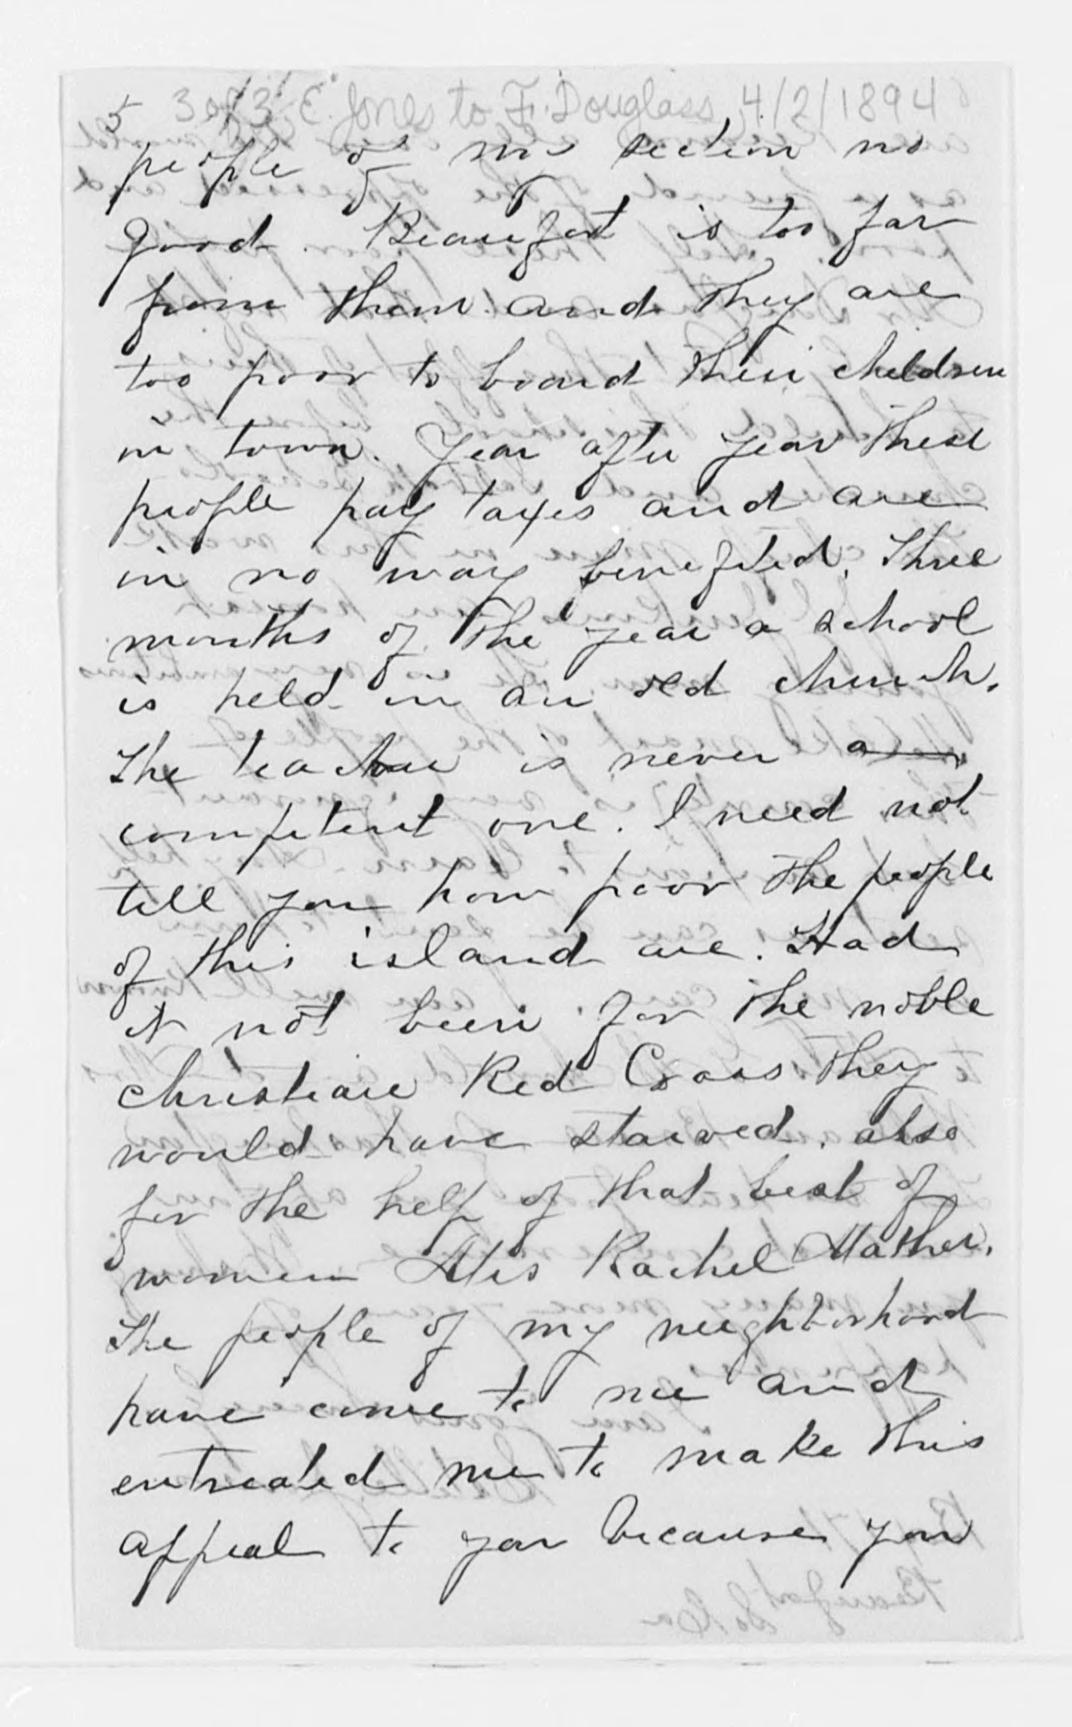 5 3 of 3 E. Jones to F. Douglass, 4/2/1894
people of my section no
good. Beaufort is too far
from them and they are
too poor to board their children
in town. Year after year these
people pay taxes and are
in no way benefited. Three
months of the year a school
is held in an old church.
The teacher is never a
competent one. I need not
tell you how poor the people
of this island are. Had
it not been for the noble
Christiane Red Cross they
would have starved, also
for the help of that best of
women Mrs Rachel Mather.
The people of my neighborhood
have come to me and
entreated me to make this
appeal to you because you